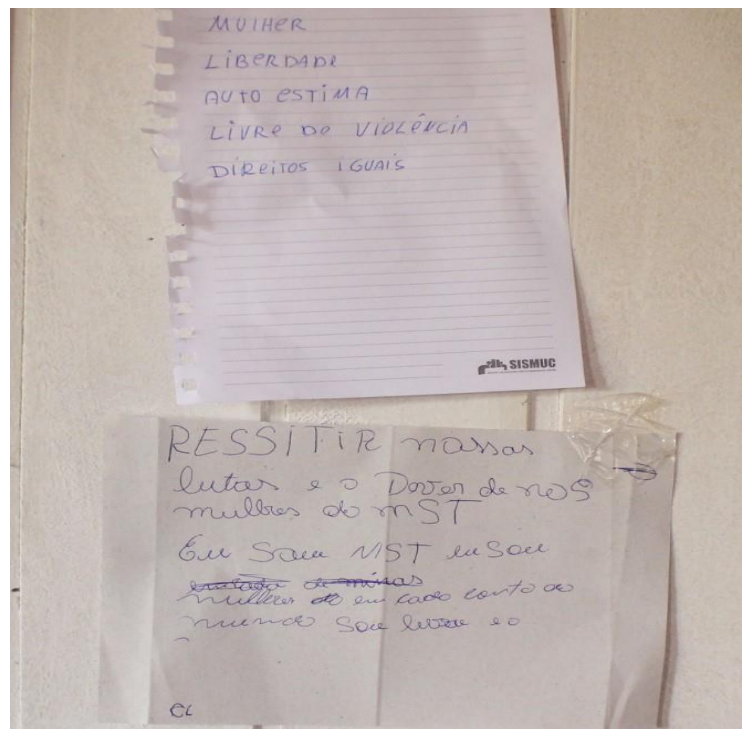 MULHER
LIBERDADE
AUTO ESTIMA
LIVRE DE VIOLÊNCIA
DIREITOS IGUAIS
SISMUC
RESSITIR nossas
lutas e o Dover de nos
mulhres do MST
Eu Sou MST eu Sou
mulheres em cada conto do
mundo Sou e o